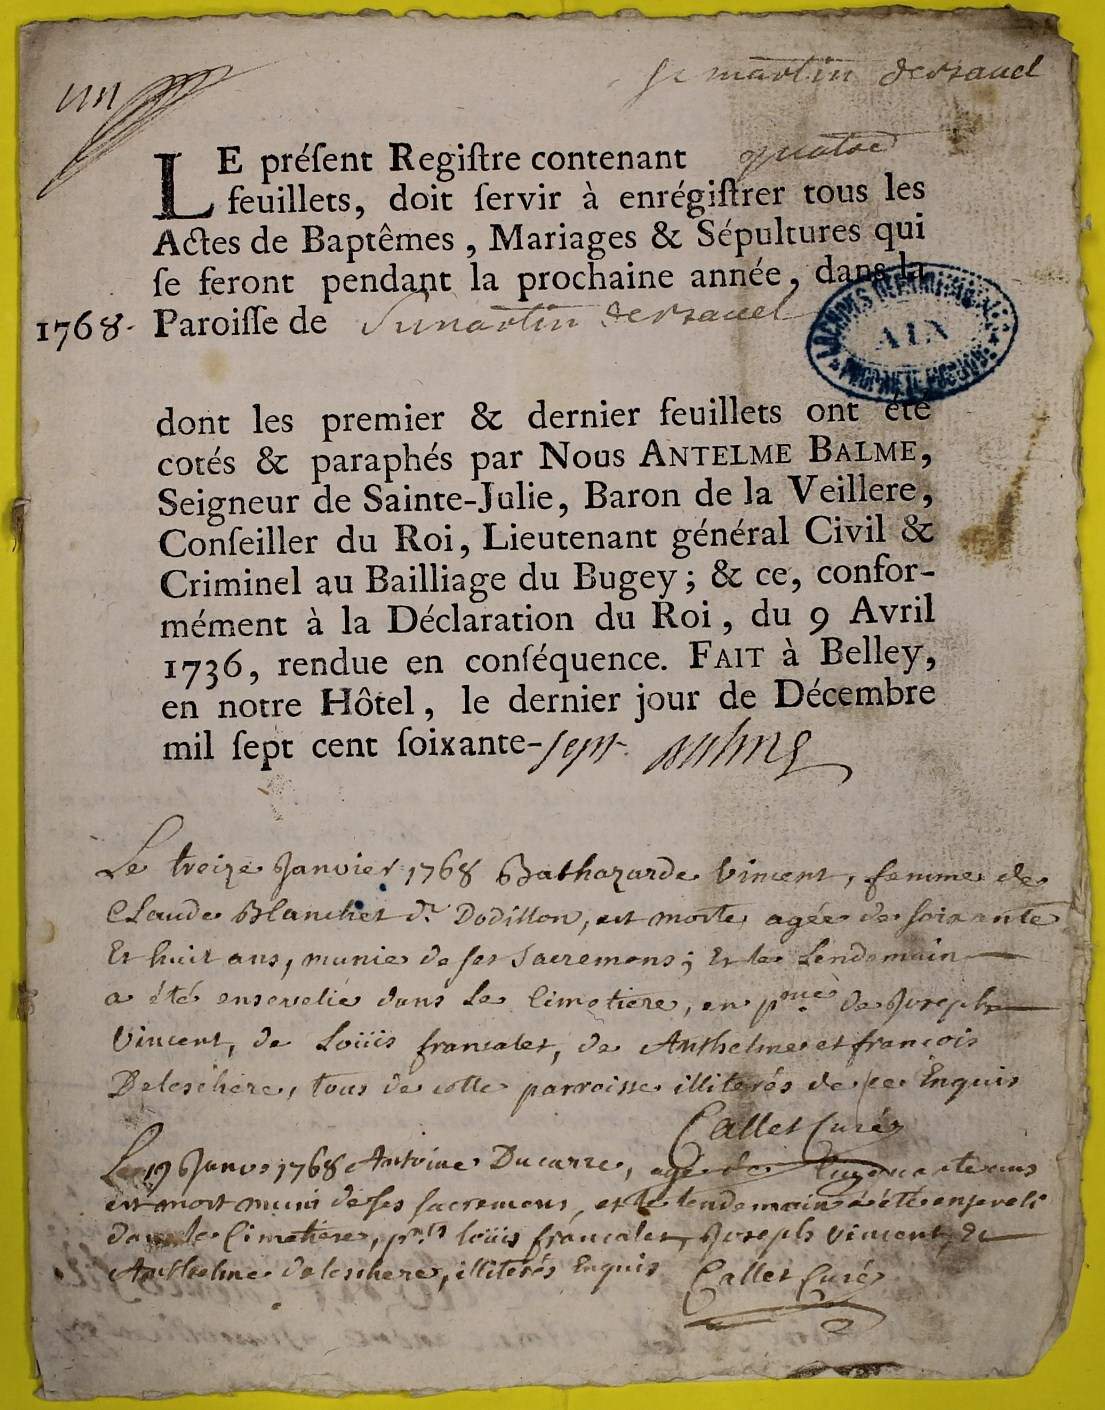 St martin de Bavel
LE préſent Regiſtre contenant quatre
feuillets, doit ſervir à enrégiſtrer tous les
Actes de Baptêmes, Mariages & Sépultures qui
ſe feront pendant la prochaine année, dans la
1768. Paroiſſe de St martin de Bavel
ARCHIVES DEPARTEMENTALES
AIN
PROPRIETE PUBLIQUE
dont les premier & dernier feuillets ont été
cotés & paraphés par Nous ANTELME BALME,
Seigneur de Sainte-Julie, Baron de la Veillere,
Conſeiller du Roi, Lieutenant général Civil &
Criminel au Bailliage du Bugey; & ce, confor-
mément à la Déclaration du Roi, du 9 Avril
1736, rendue en conſéquence. FAIT à Belley,
en notre Hôtel, le dernier jour de Décembre
mil ſept cent ſoixante-sept. Balme
Le treize Janvier 1768 Bathazarde Vincent, femme de
Claude Blanchet dt Dodillon, est morte agée de soixante
Et huit ans, munie de ses sacremens; Et le Lendemain
a été ensevelie dans le Cimetiere, en pnce de Joseph
Vincent, de Loüis francalet, de Anthelme et francois
Delescherе, tous de cette parroisse illiterés de ce Enquis
Callet Curé
Le 19 Janvr 1768 Antoine Ducarre, agé de ans
est mort muni de ses sacremens, et le lendemain a été enseveli
dans le Cimetiere, pnts loüis francalet, Joseph Vincent, Et
Anthelme deleschere, illiterés Enquis Callet Curé